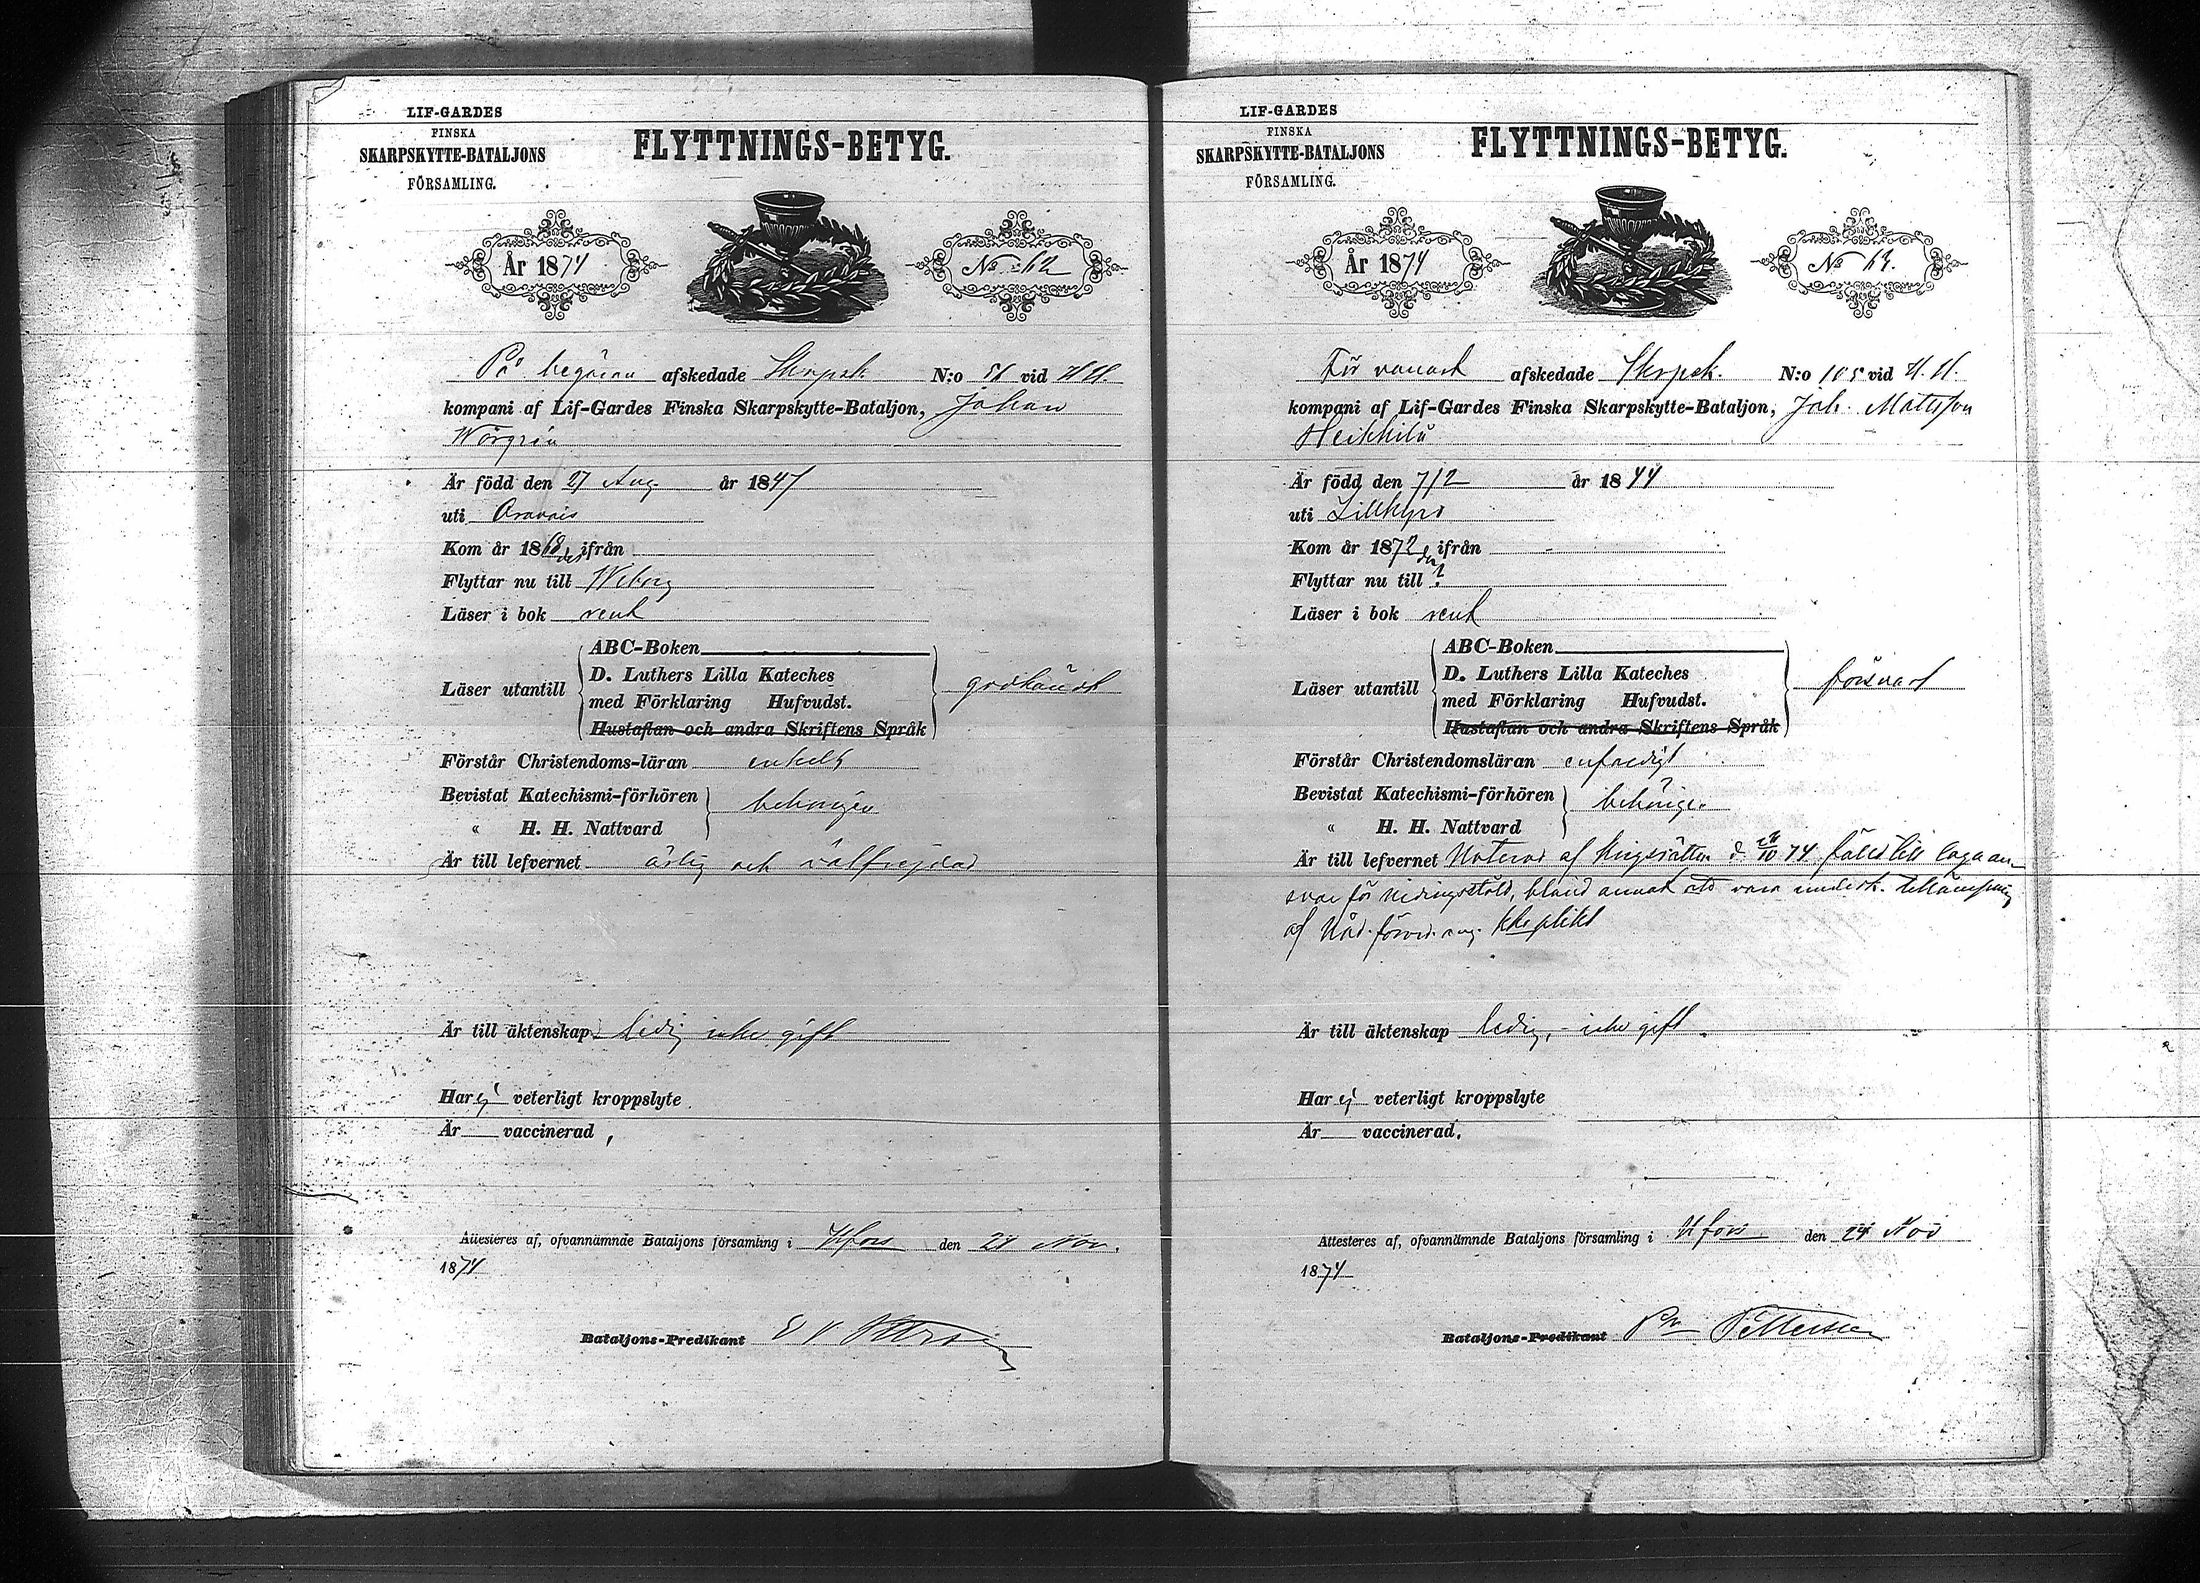 LIF-GARDES
FINSKA
SKARPSKYTTE-BATALJONS
FÖRSAMLING.
FLYTTNINGS-BETYG.
År 1874
No 62
På begäran afskedade Skrpsk. N:o 51 vid
kompani af Lif-Gardes Finska Skarpskytte-Bataljon, Johan
Wörgrén
Är född den 27 Aug år 1847
uti Oravais
Kom år 1868 ifrån
Flyttar nu till Wiborg
Läser i bok rent
ABC-Boken
D. Luthers Lilla Kateches
Läser utantill
med Förklaring Hufvudst.
godkändt
Hustaflan och andra Skriftens Språk
Förstår Christendoms-läran enkelt
Bevistat Katechismi-förhören
behörigen
« H. H. Nattvard
Är till lefvernet ärlig och välfrejdad
Är till äktenskap ledig icke gift
Har ej veterligt kroppslyte
Är vaccinerad,
Attesteres af, ofvannämnde Bataljons församling i Hfors den 24 Nov.
1874
Bataljons-Predikant
LIF-GARDES
FINSKA
SKARPSKYTTE-BATALJONS
FÖRSAMLING.
FLYTTNINGS-BETYG.
År 1874
No 63.
För vanart afskedade Skrpsk. N:o 105 vid
kompani af Lif-Gardes Finska Skarpskytte-Bataljon, Joh. Mattsson
Heikkilä
Är född den 7/2 år 1844
uti Lillkyro
Kom år 1872 ifrån -
Flyttar nu till ?
Läser i bok rent
ABC-Boken
D. Luthers Lilla Kateches
Läser utantill
med Förklaring Hufvudst.
försvart
Hustaflan och andra Skriftens Språk
Förstår Christendomsläran enfaldigt
Bevistat Katechismi-förhören
behörigen
« H. H. Nattvard
Är till lefvernet af Krigsrätten d. 74 fälld till laga an-
svar för bland annat att vara underk.
af
Är till äktenskap ledig, - icke gift.
Har ej veterligt kroppslyte
Är vaccinerad.
Attesteres af, ofvannämnde Bataljons församling i Hfors den 24 Nov
1874
Bataljons-Predikant Pettersson